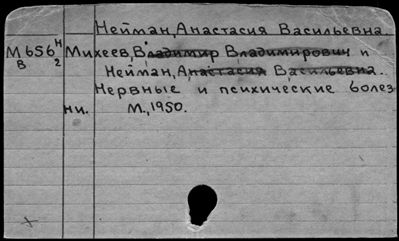 Нейман, Анастасия Васильевна.
М656 Н Михеев, Владимир Владимирович и
В 2 Нейман, Анастасия Васильевна.
Нервные и психические болез
ни. М., 1950.